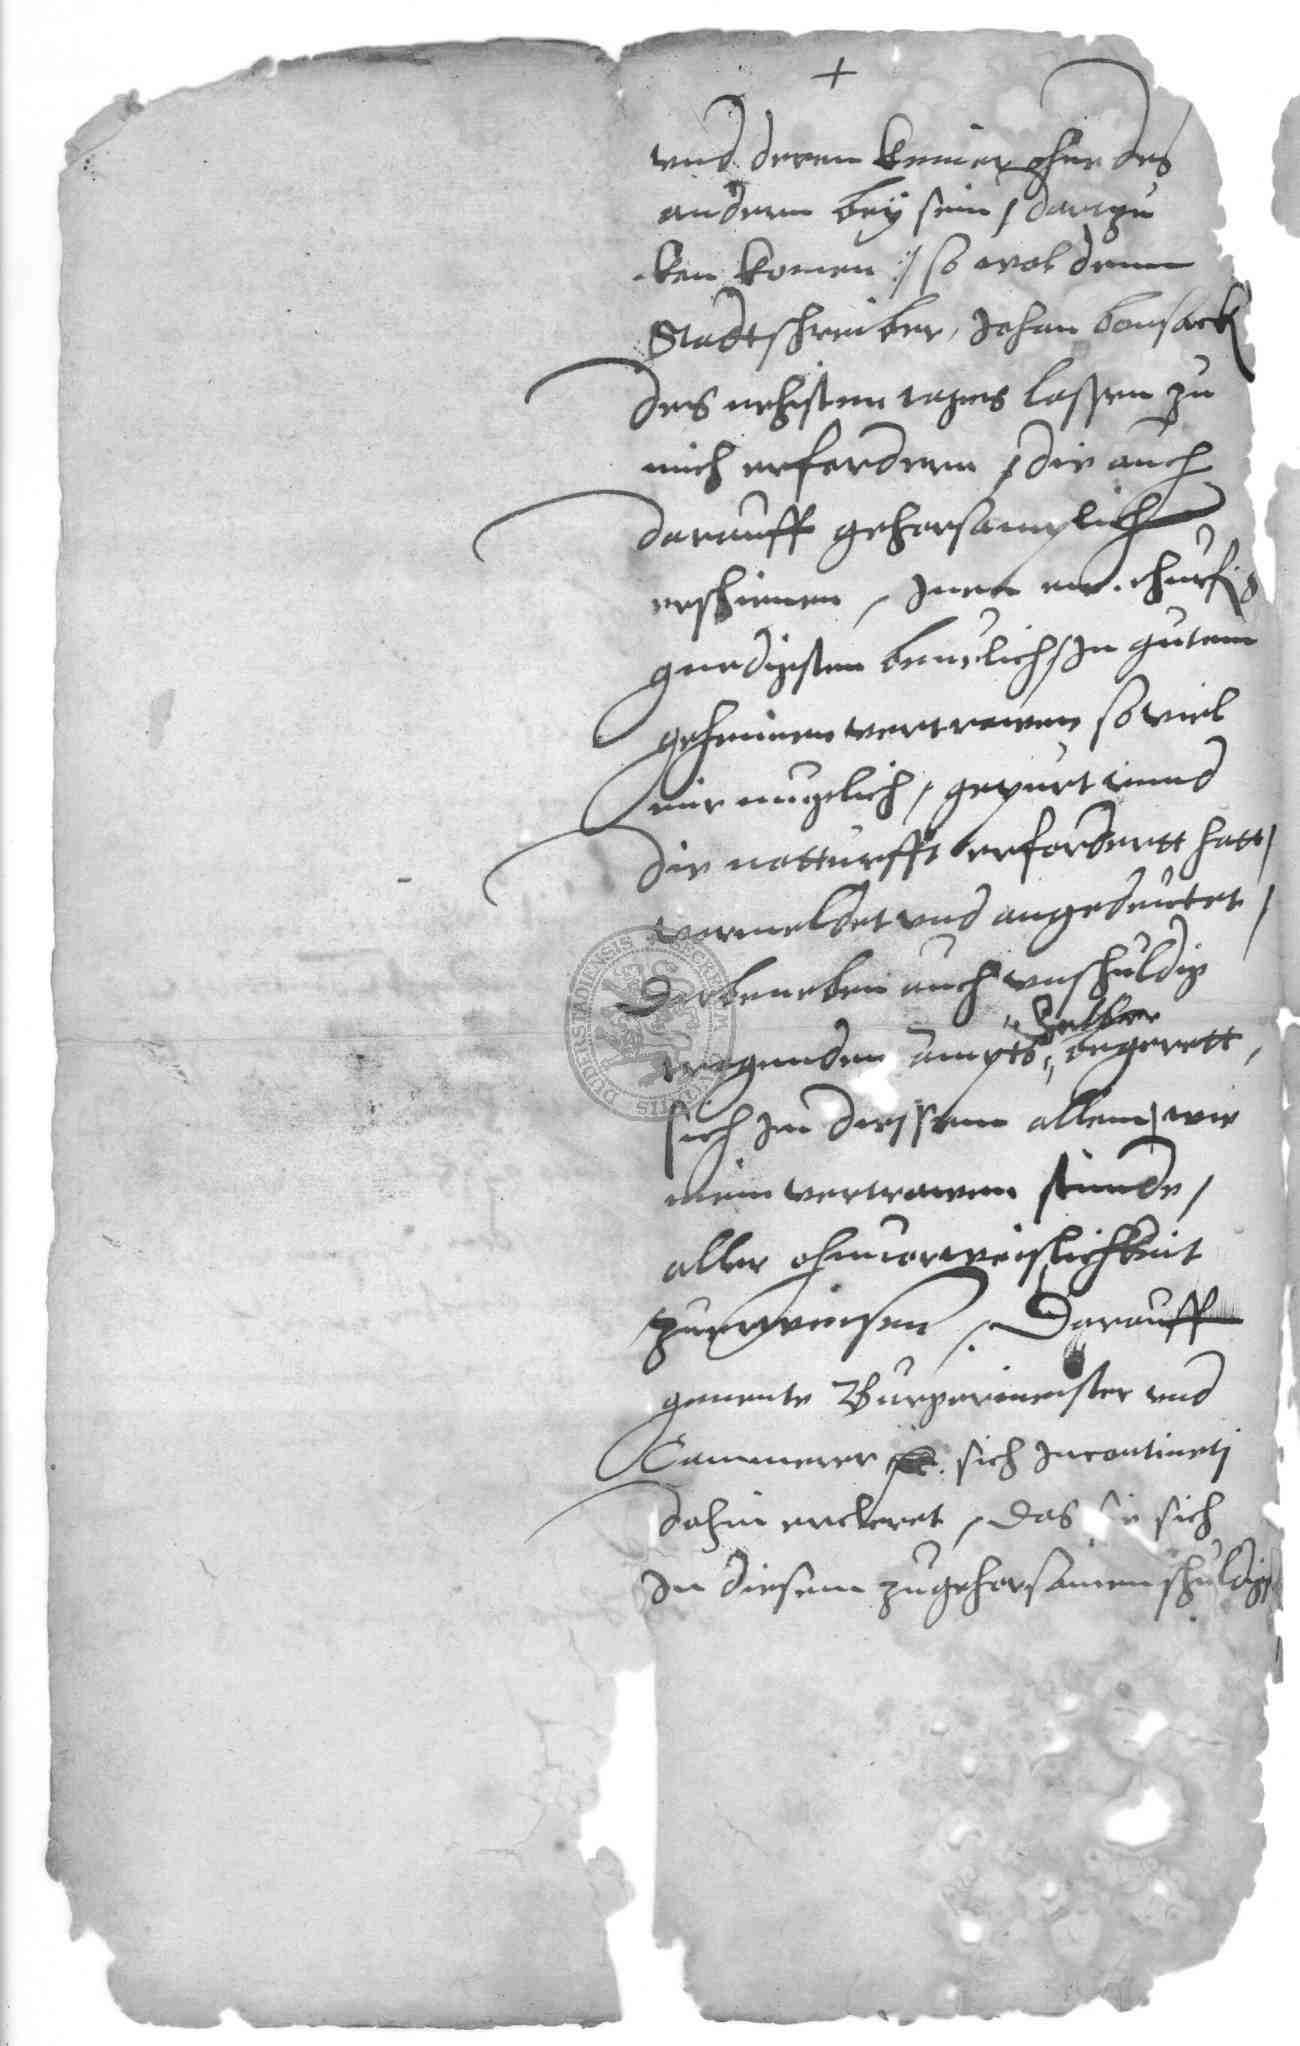 +
vnd deren keiner ohne des
andern bey sein / dartzu
ken komen :/ so wol denn
Stadtschreiber, Johan bonsack
des nehisten tages lassen zu
mich erfordern / die auch
darauff gehorsamplich
erschienen / Inen ew. churf. g
gnedigsten beuelich / In gutem
geheimen vertrawen so viel
mir muglich / gepurt vnnd
die notturfft erfordertt hatt /
vermeldet vnd angedeutet /
Darbeneben auch vnschuldig
tragenden ampts halber begerett /
sich In diesem allem / wie
mein vertrawen stunde /
aller ohnuorweislichkeit
zuerweisen / Darauff
gemente Burgermeister vnd
Cammerer sich Incontineti
dahin ercleret / das sie sich
In diesem zugehorsamen schuldig
SIGILLUM SECRETUM CIVITATIS DUDERSTADIENSIS